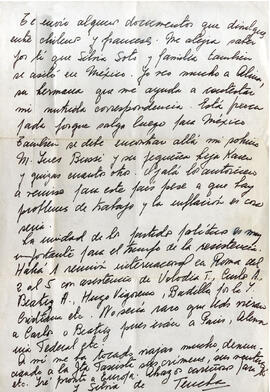 Te envío algunos documentos que divulgan
entre chilenos y franceses. Me alegra saber
por ti que Silvia Soto y familia también
se asiló en México. Yo veo mucho a
su hermana que me ayuda a contestar
mi nutrida correspondencia. Está preocu
pada porque salga luego para México
También se debe encontrar allá mi sobrina
M. Inés Bussi y su pequeña hija Karen
y quizás cuantos otros. Ojalá los autoricen
a venirse para este país pese a que hay
problemas de trabajo y la inflación es cosa
seria
La unidad de los partidos políticos es muy
importante para el tiempo de la resistencia.
Habrá 1 reunión internacional en Roma del
2 al 5 con asistencia de Volodia T, Carlos A.
Beatriz A., Hugo Vigorena, Badilla por la I.
Cristiana etc. No sería raro que Uds vieran
a Carlos o Beatriz pues irán a París, Alema
nia Federal etc.
A mí me ha tocado viajar mucho, denun
ciando a la Jta Fascista, sus crímenes, sus mentiras
etc. Iré pronto a Europa. Abrazos cariñosos para ti
y Silvia de Tencha